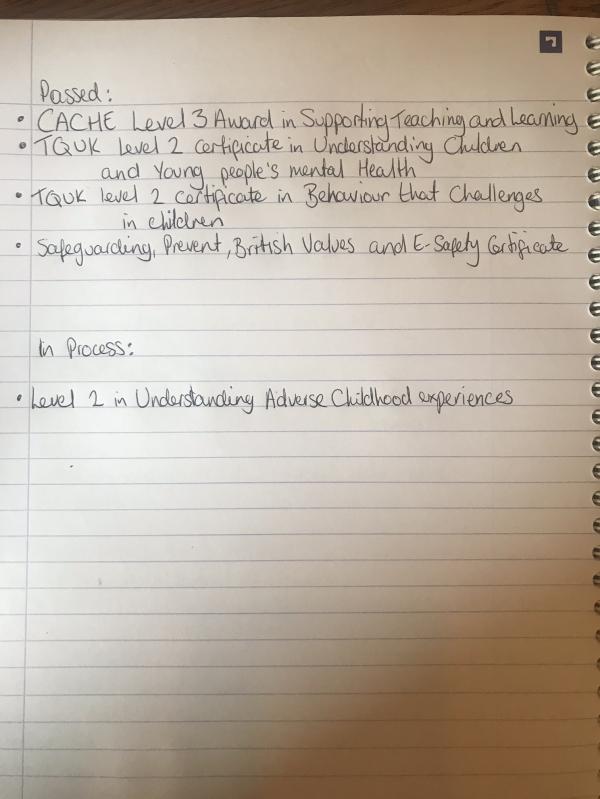 Passed:
• CACHE Level 3 Award in Supporting Teaching and Learning
• TQUK Level 2 Certificate in Understanding Children
and Young people's mental Health
• TQUK level 2 Certificate in Behaviour that Challenges
in children
• Safeguarding, Prevent, British Values and E-Safety Certificate
In Process:
• Level 2 in Understanding Adverse Childhood experiences